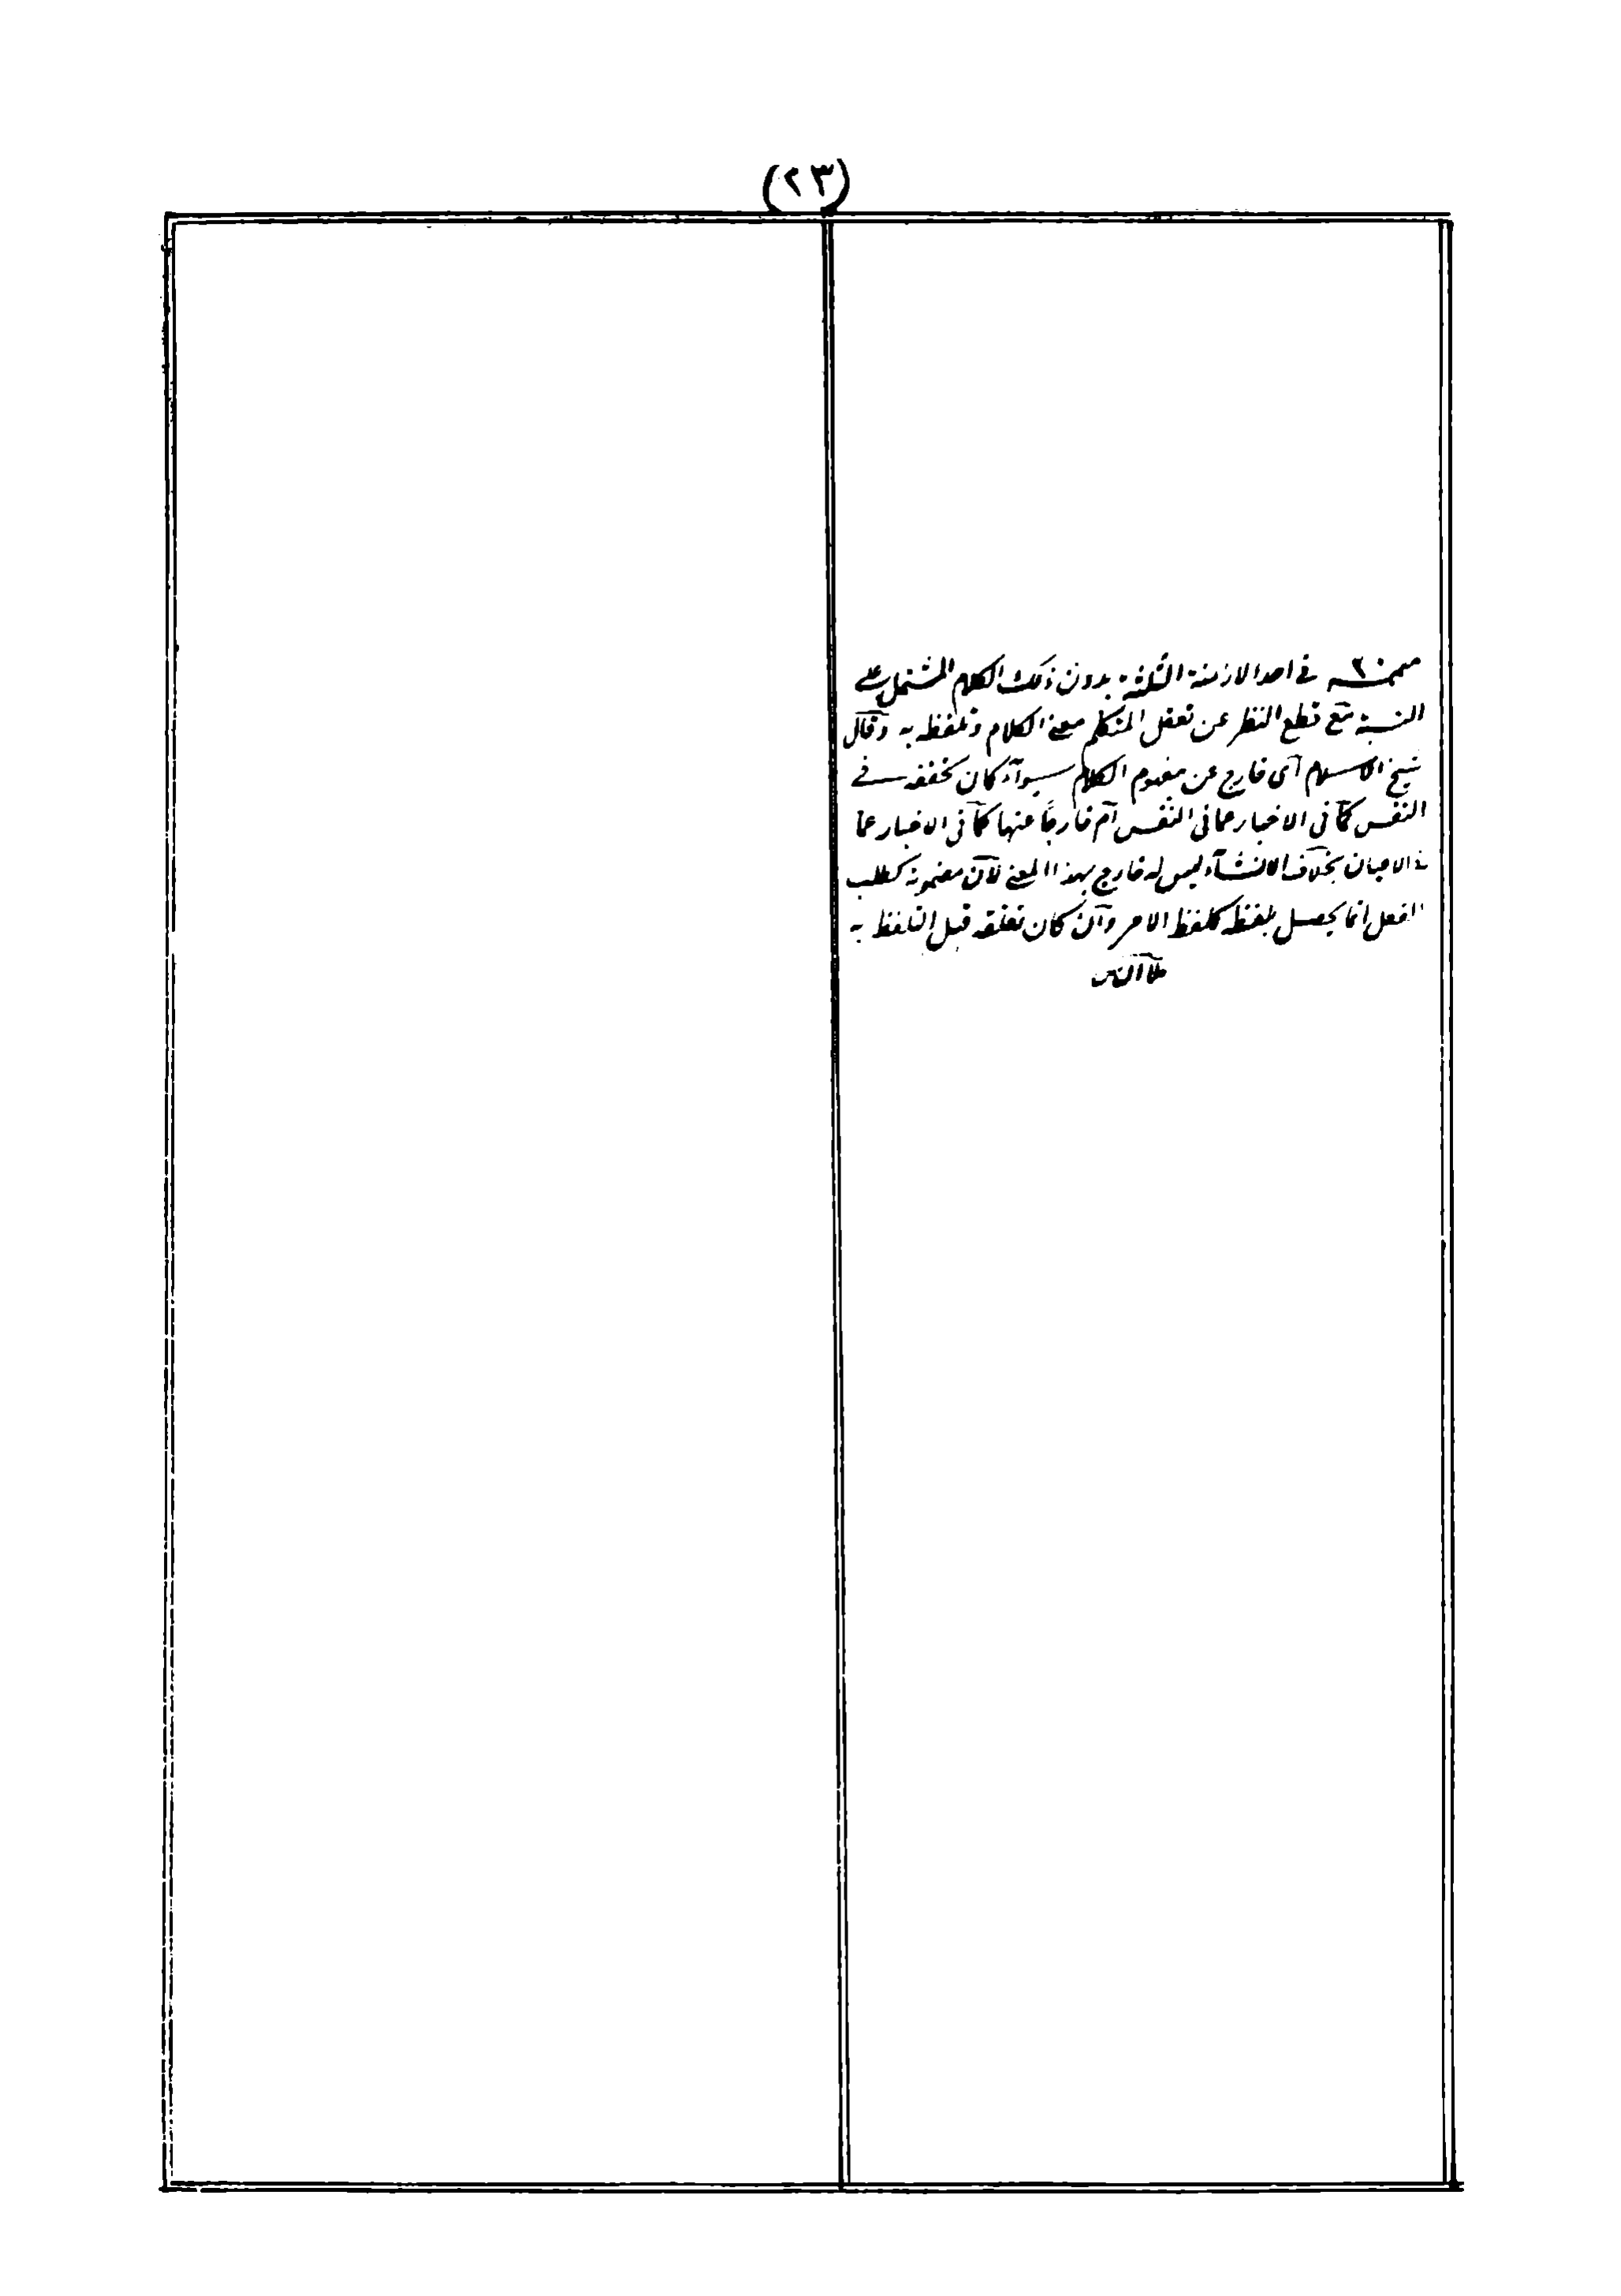 (٢٣)
في احد الازمنة الثلثة بدون ذلك الكلام المشتمل على
النسبة مع قطع النظر عن تعقل المتكلم معنى الكلام وتلفظه به وقال
شيخ الاسلام اى خارج عن مفهوم الكلام سوآء كان تحققه في
النفس كما في الاخبار عما في النفس ام خارجًا عنها كما في الاخبار عما
في الاعيان بخلاف الانشآء ليس له خارج بهذا المعنى لان مضمونه كطلب
الفعل انما يحصل بلفظه كلفظ الامر وان كان تعلقه قبل التلفظ به